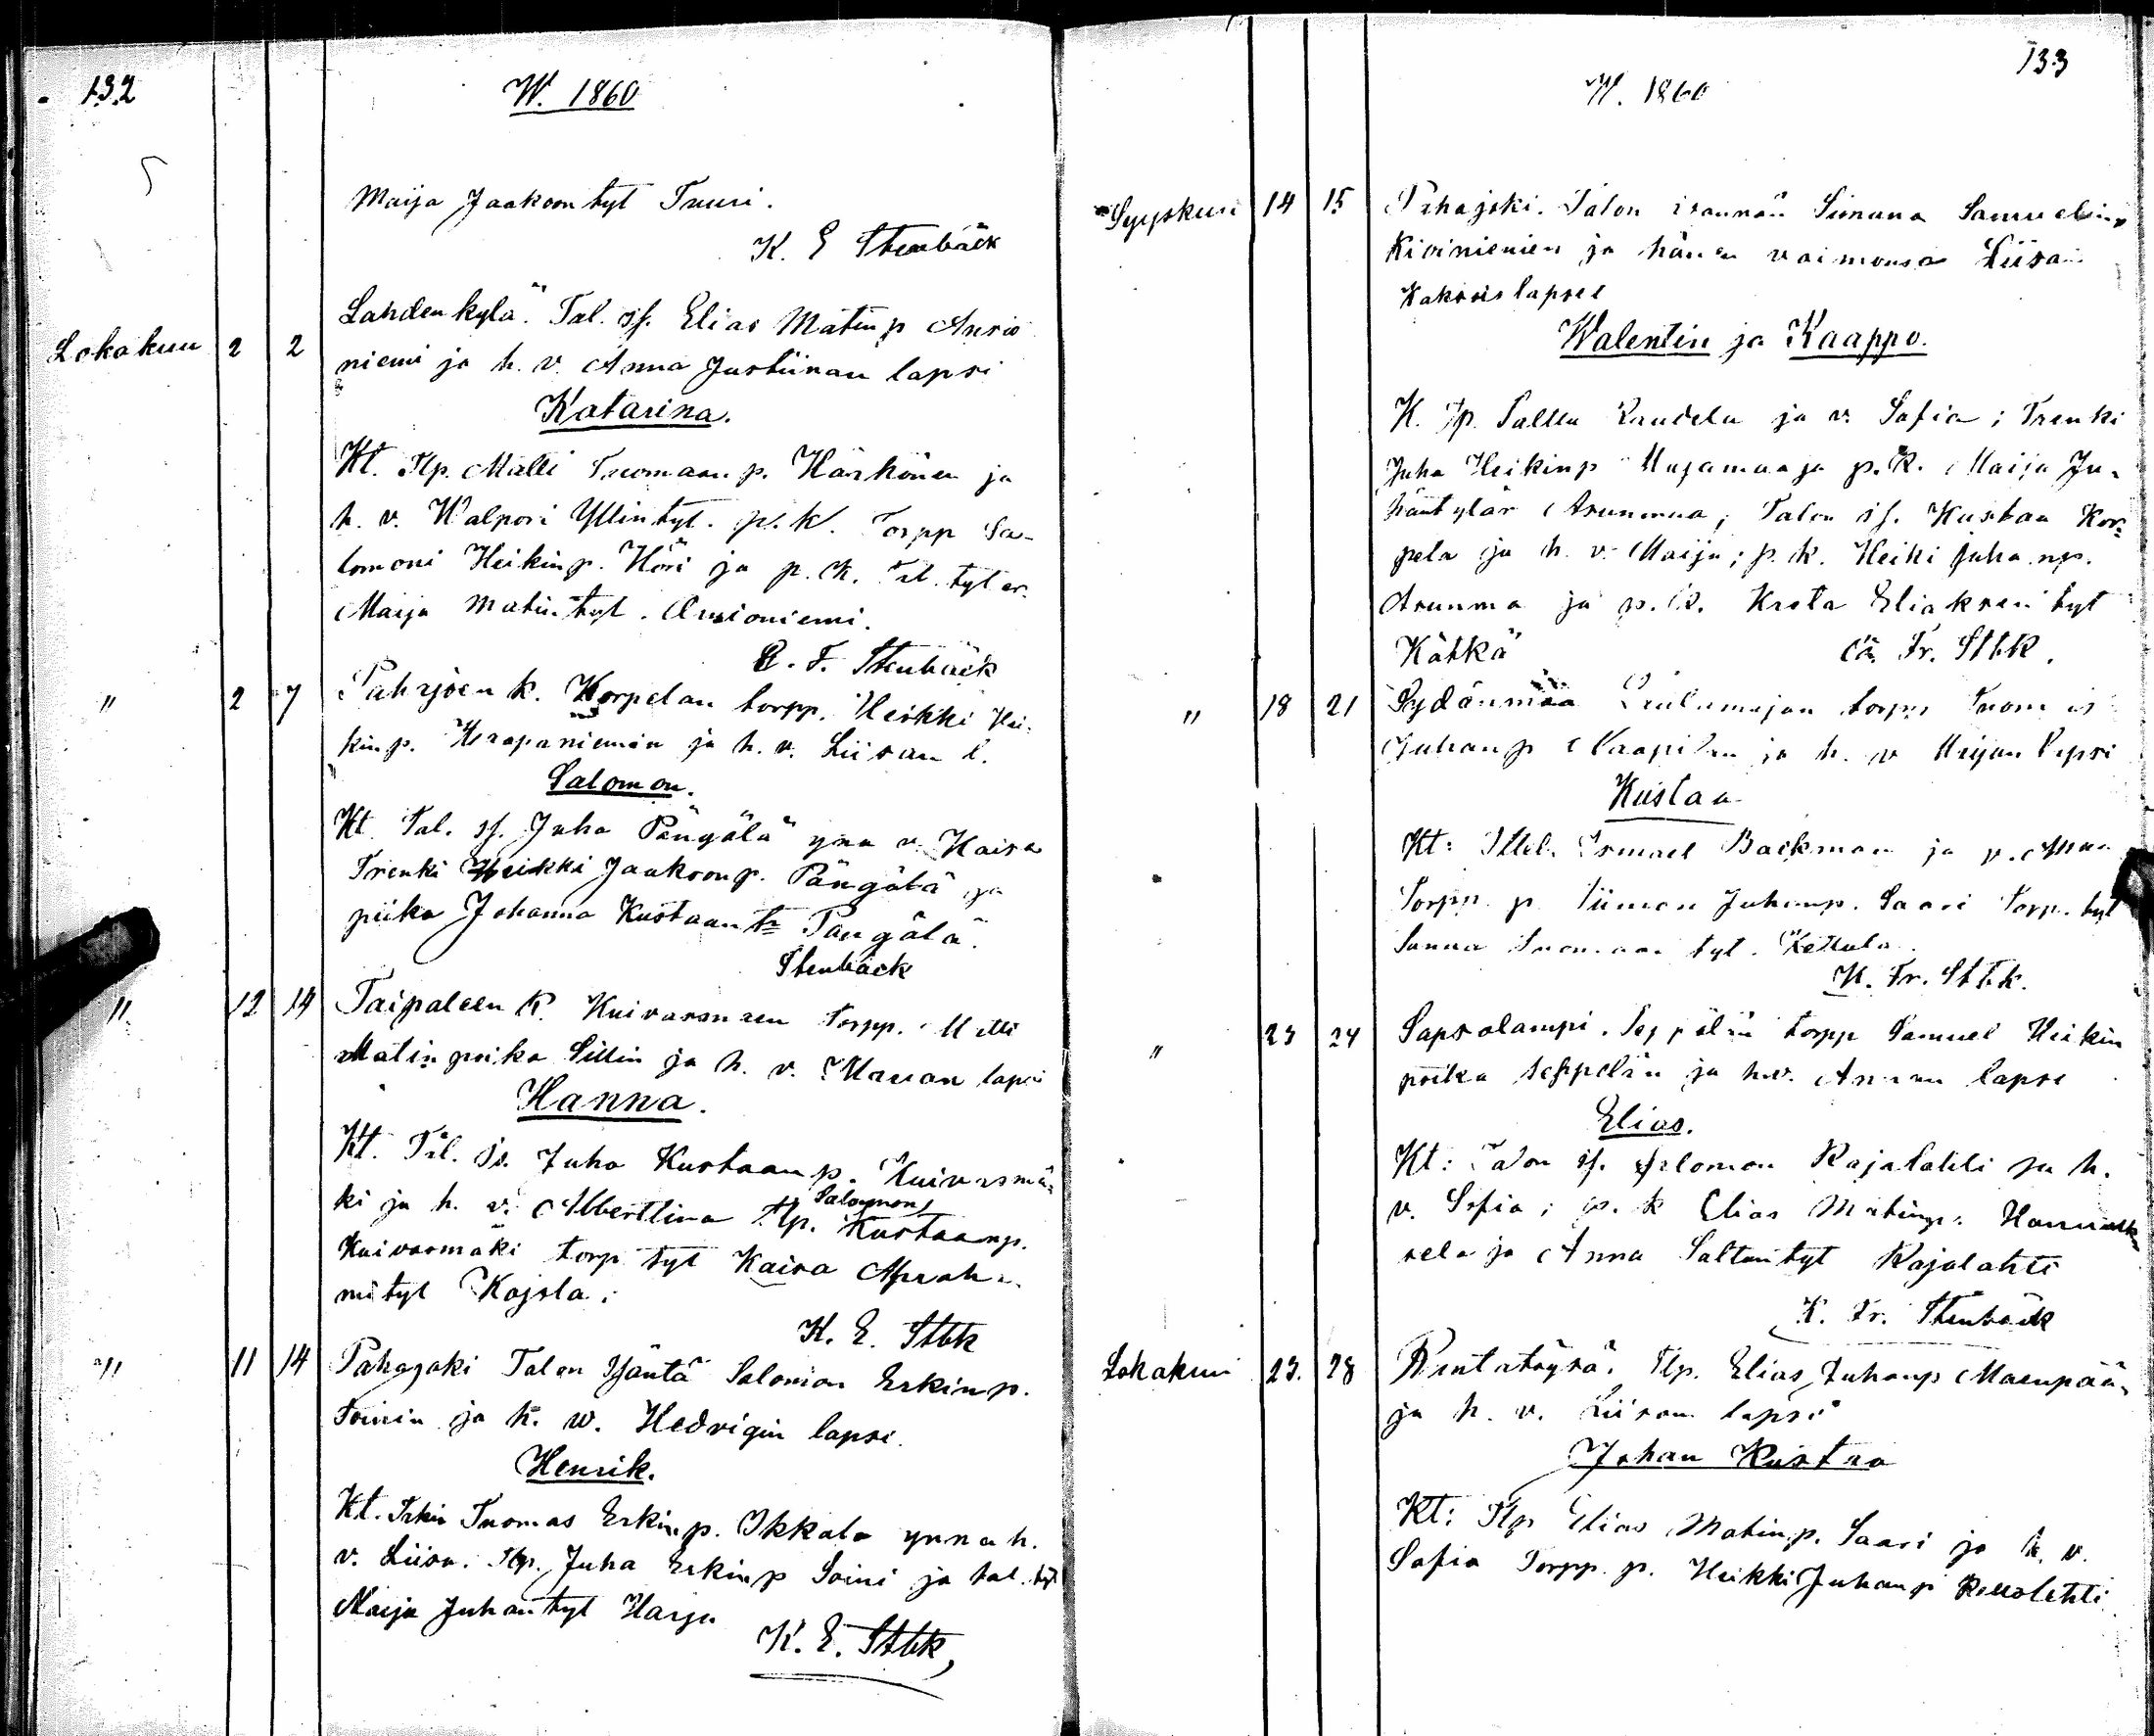 132
W. 1860
Maija Jaakoon tyt Tuuri.
K. E Stenbäck
Lokakuu 2 2 Lahdenkylä. Tal. sf. Elias Matinp Ansio
niemi ja h. v. Anna Justiinan lapsi
Katarina.
Kt. Tlp. Matti Tuomaan p. Härkönen ja
h. v. Walpori Yllin tyt. p. k. Torpp Sa-
lomoni Heikinp. Höri ja p. k. Tal. tytär.
Maija Matin tyt. Ansioniemi.
K. F. Stenbäck
" 2 7 Pahajoen k. Korpelan torpp. Heikki Hei-
kinp. Haapaniemen ja h. v. Liisan l.
Salomon.
Kt Tal. sf. Juha Pängälä ynn v. Kaisa
Trenki Heikki Jaakoonp. Pängälä ja
piika Johanna Kustaan tr Pängälä.
Stenbäck
" 12 14 Taipaleen k. Kuivasmäen torpp. Matti
Matin poika Sillin ja h. v. Marian lapsi
Hanna.
Kt. Tal. is. Juha Kustaan p. Kuivasmä-
ki ja h. v. Albertiina Tlp. Salomon Kustaanp.
Kuivasmäki torp tyt Kaisa Aprah
mityt Kojola.
K. E. Stbk
" 11 14 Pahajoki Talon Isäntä Salomon Erkinp.
Soinin ja h. w. Hedvigin lapsi.
Henrik.
Kt. Tuomas Erkinp. Okkola ynna h.
v. Liisa. Tlp. Juha Erkinp Soini ja tal. tyt
Maija Juhan tyt Harju
K. E. Stbk,
133
W. 1860
Syyskuu 14 15 Pahajoki. Talon isännän Simuna Samuelinp
Kiviniemen ja hänen vaimonsa Liisan
Kaksois lapset
Walentin ja Kaappo.
K. Tp. Salleu ja v. Sofia; Trenki
Juha Heikinp ja p. k. Maija Ju-
hantytär Asunmaa; Talon sf. Kustaa Kor-
pela ja h. v. Maija; p. k. Heiki Juha np.
Asunma ja p. k. Eliaksen tyt
Kätkä Fr. Stbk.
" 18 21 Sydänmaa torpp Tuomas
Juhan p ja h. v Maijan lapsi
Kustaa
Kt: Ittel. Ismael Backman ja v.
Torpp. p. Siimon Juhanp. Saari Torp. tyt
Sanna Tuomaan tyt. Kettula.
K. Fr. Stbk.
" 23 24 Sapsolampi. Seppälän torpp Samuel Heikin
poika Seppelän ja h.v. Annan lapsi
Elias.
Kt: Talon sf. Salomon Rajalahti ja h.
v. Sofia; p. k Elias Matinp.
sela ja Anna tyt Rajalahti
K. Fr. Stenbäck
Lokakuu 23. 28 Rantatöysä. Tlp. Elias Juhanp Mäenpään
ja h. v. Liisan lapsi
Johan Kustaa
Kt: Tlp Elias Matinp. Saari ja h. v.
Sofia Torpp. p. Heikki Juhanp